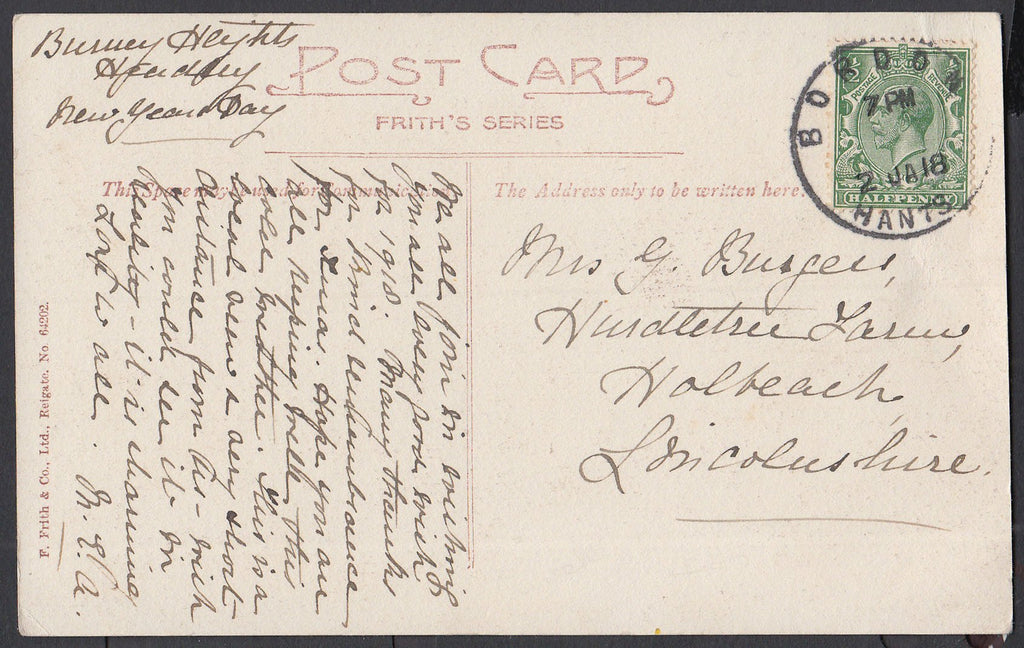 Burney Heights
Headley
New Years Day
POST CARD
FRITH'S SERIES
This Space may be used for Communication.
The Address only to be written here.
BORDON
7 PM
2 JA 18
HANTS
POSTAGE REVENUE
½ ½
HALFPENNY
We all join in wishing
you all every good wish
for 1918. Many thanks
for kind remembrance
for Xmas. Hope you are
all keeping well this
cold weather. This is a
a very short
distance from us - wish
you could see it in
reality - it is charming
Love to all.
Mrs G. Burgess,
Hurdletree Farm,
Holbeach,
Lincolnshire.
F. Frith & Co., Ltd., Reigate. No. 64202.